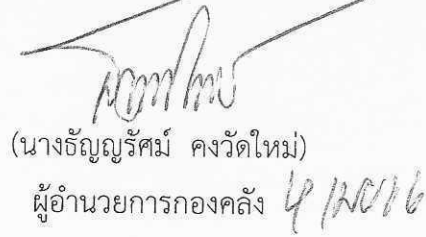 (นางธัญญรัศม์ คงวัดใหม่)
ผู้อำนวยการกองคลัง